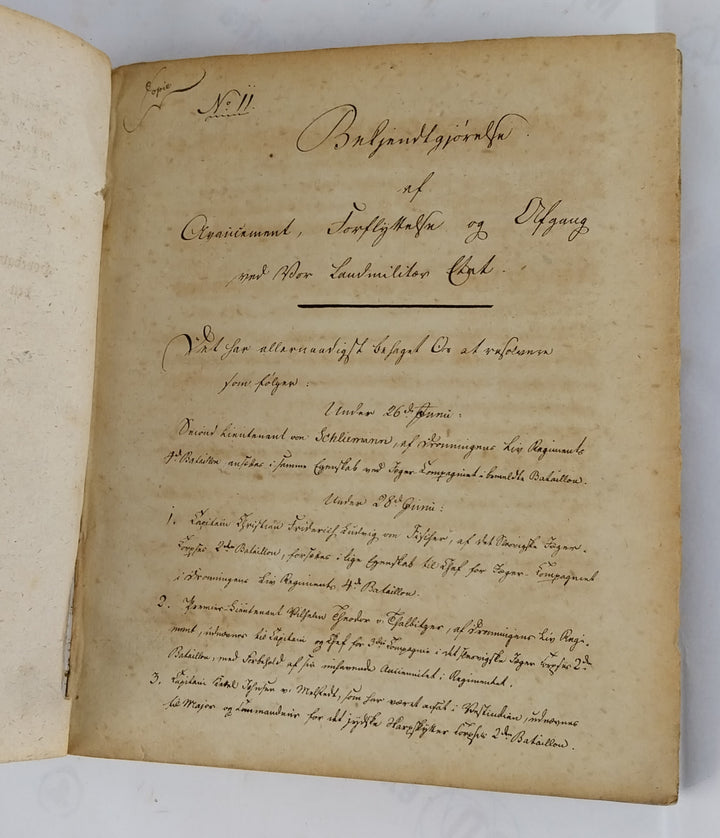 Copie
No 11.
Bekjendtgjørelse
af
Avancement, Forflyttelse og Afgang
ved Vor Landmilitær Etat.
Det har allernaadigst behaget Os at resolvere
som følger:
Under 26de Junii:
Second Lieutenant von Schliemann, af Dronningens Liv Regiments
4de Bataillon ansættes i samme Egenskab ved Jæger Compagniet i bemeldte Bataillon.
Under 28de Junii:
1. Capitain Christian Friderich Ludvig von Fischer, af det Slesvigske Jæger-
Corpses 2den Bataillon, forsættes i lige Egenskab til Chef for Jæger-Compagniet
i Dronningens Liv Regiments 4de Bataillon.
2. Premier-Lieutenant Vilhelm Theodor v. Thalbitzer, af Dronningens Liv Regi-
ment, udnævnes til Capitain og Chef for 3die Compagnie i det slesvigske Jæger Corpses 2den
Bataillon, med Forbehold af sin inhavende Anciennitet i Regimentet.
3. Capitain Ketel Johnsen v. Melstedt, som har været ansat i Vestindien, udnævnes
til Major og Commandeur for det jydske Skarpskytter Corpses 2den Bataillon.